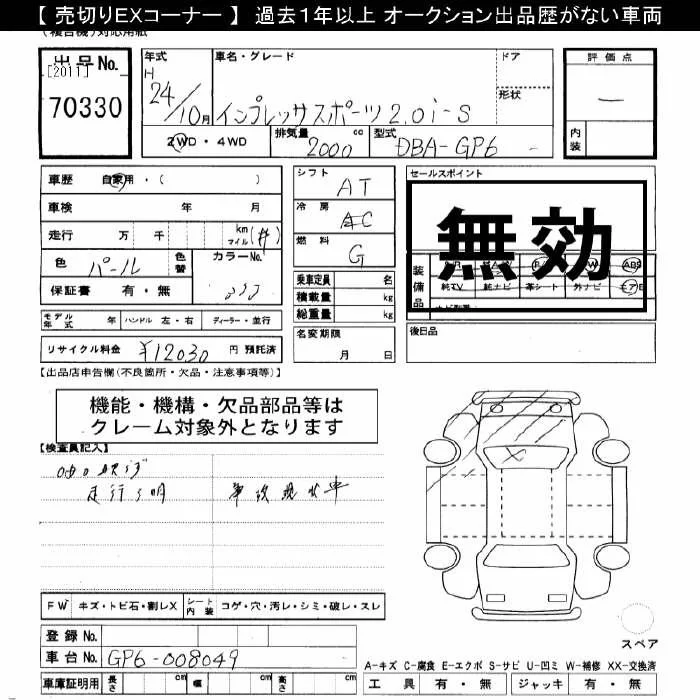 【 売切りEXコーナー 】 過去1年以上 オークション出品歴がない車両
(複合機)対応用紙
出品No.
[2011]
70330
年式 車名・グレード ドア
H
24/10月 インプレッサスポーツ2.0i-S 形状
2WD・4WD 排気量 2000 cc 型式 DBA-GP6
評価点
―
内装
車歴 自家用・( )
車検 年 月
走行 万 千 km マイル (#)
色 パール 色替 カラーNo.
保証書 有・無
モデル年式 年 ハンドル 左・右 ディーラー・並行
リサイクル料金 ¥12030 円 預託済
シフト AT
冷房 AC
燃料 G
乗車定員 名
積載量 kg
総重量 kg
名変期限
月 日
セールスポイント
無効
装備品 ABS
純TV 純ナビ 革シート 外ナビ エアB
後日品
【出品店申告欄(不良箇所・欠品・注意事項等)】
機能・機構・欠品部品等は
クレーム対象外となります
【検査員記入】
走行不明 事故現状車
FW キズ・トビ石・割レX シート内装 コゲ・穴・汚レ・シミ・破レ・スレ
登録No.
車台No. GP6-008049
車庫証明用 長さ cm 幅 cm 高さ cm
スペア
A-キズ C-腐食 E-エクボ S-サビ U-凹ミ W-補修 XX-交換済
工具 有・無 ジャッキ 有・無